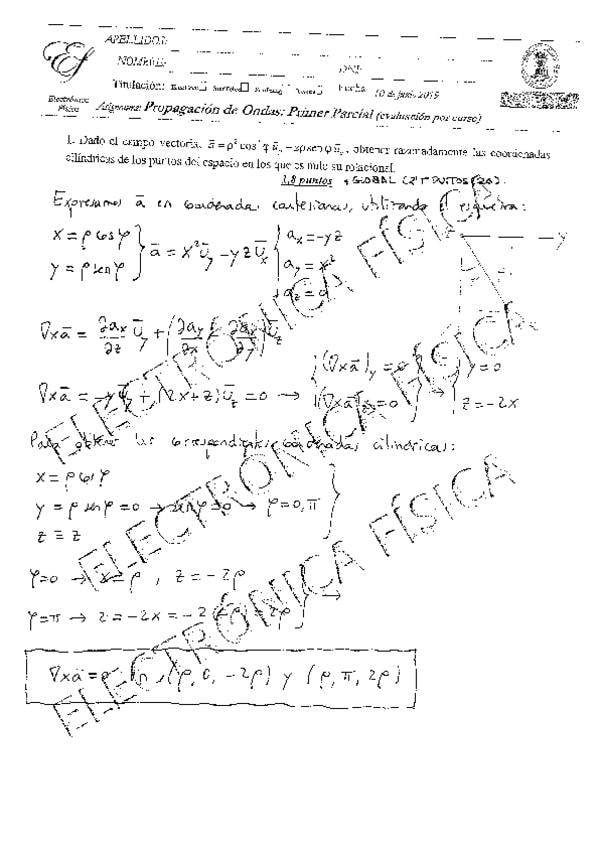 APELLIDOS:
NOMBRE:
DNI:
Titulación: Fecha 10 de junio 2019
Electrónica Física
Asignatura: Propagación de Ondas: Primer Parcial (evaluación por curso)
1. Dado el campo vectorial a̅ = ρ² cos² φ u̅ − zρ sen φ u̅ , obtener razonadamente las coordenadas
cilíndricas de los puntos del espacio en los que es nulo su rotacional.
1,8 puntos + GLOBAL
Expresamos a̅ en coordenadas cartesianas, utilizando el esquema:
x = ρ cos φ
y = ρ sen φ } a̅ = x² u̅y − yz u̅x { ax = −yz
ay = x²
az = 0
Y
∇xa̅ = ∂ax/∂z u̅y + (∂ay/∂x − ∂ax/∂y) u̅z
∇xa̅ = −y u̅y + (2x+z) u̅z = 0 → { (∇xa̅)y = 0
(∇xa̅)z = 0 } y = 0
z = −2x
Para obtener las correspondientes coordenadas cilíndricas:
x = ρ cos φ
y = ρ sen φ = 0 → sen φ = 0 → φ = 0, π
z ≡ z
φ=0 → x = ρ , z = −2ρ
φ=π → z = −2x = −2(−ρ) = 2ρ →
∇xa̅ = 0 en (ρ, 0, −2ρ) y (ρ, π, 2ρ)
ELECTRÓNICA FÍSICA
ELECTRÓNICA FÍSICA
ELECTRÓNICA FÍSICA